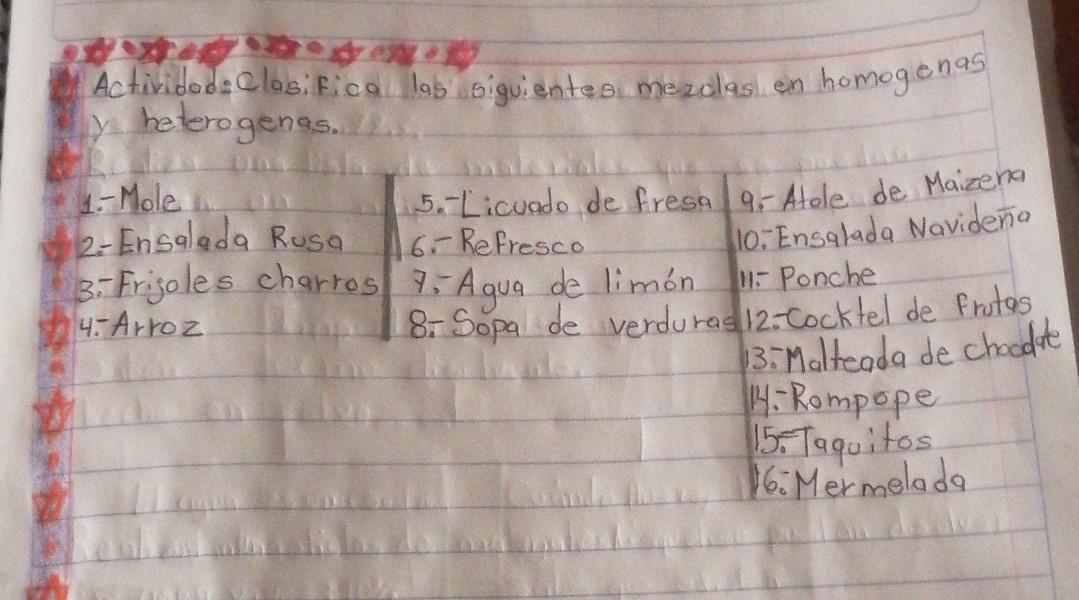 Actividad: Clasifica las siguientes mezclas en homogenas
y heterogenas.
1.- Mole
2.- Ensalada Rusa
3.- Frijoles charros
4.- Arroz
5.- Licuado de fresa
6.- Refresco
7.- Agua de limón
8.- Sopa de verduras
9.- Atole de Maizena
10.- Ensalada Navideña
11.- Ponche
12.- Cocktel de frutas
13.- Malteada de chocolate
14.- Rompope
15.- Taquitos
16.- Mermelada